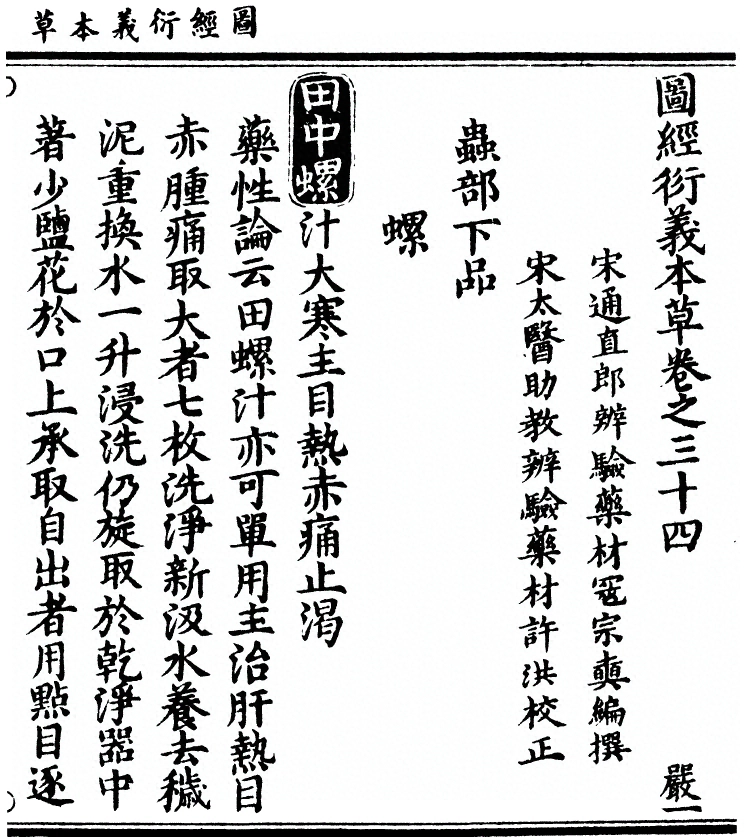 圖經衍義本草
圖經衍義本草卷之三十四 嚴一
宋通直郎辨驗藥材宼宗奭編撰
宋太醫助教辨驗藥材許洪校正
蟲部下品
螺
田中螺汁大寒主目熱赤痛止渴
藥性論云田螺汁亦可單用主治肝熱目
赤腫痛取大者七枚洗淨新汲水養去穢
泥重換水一升浸洗仍旋取於乾淨器中
著少鹽花於口上承取自出者用點目逐